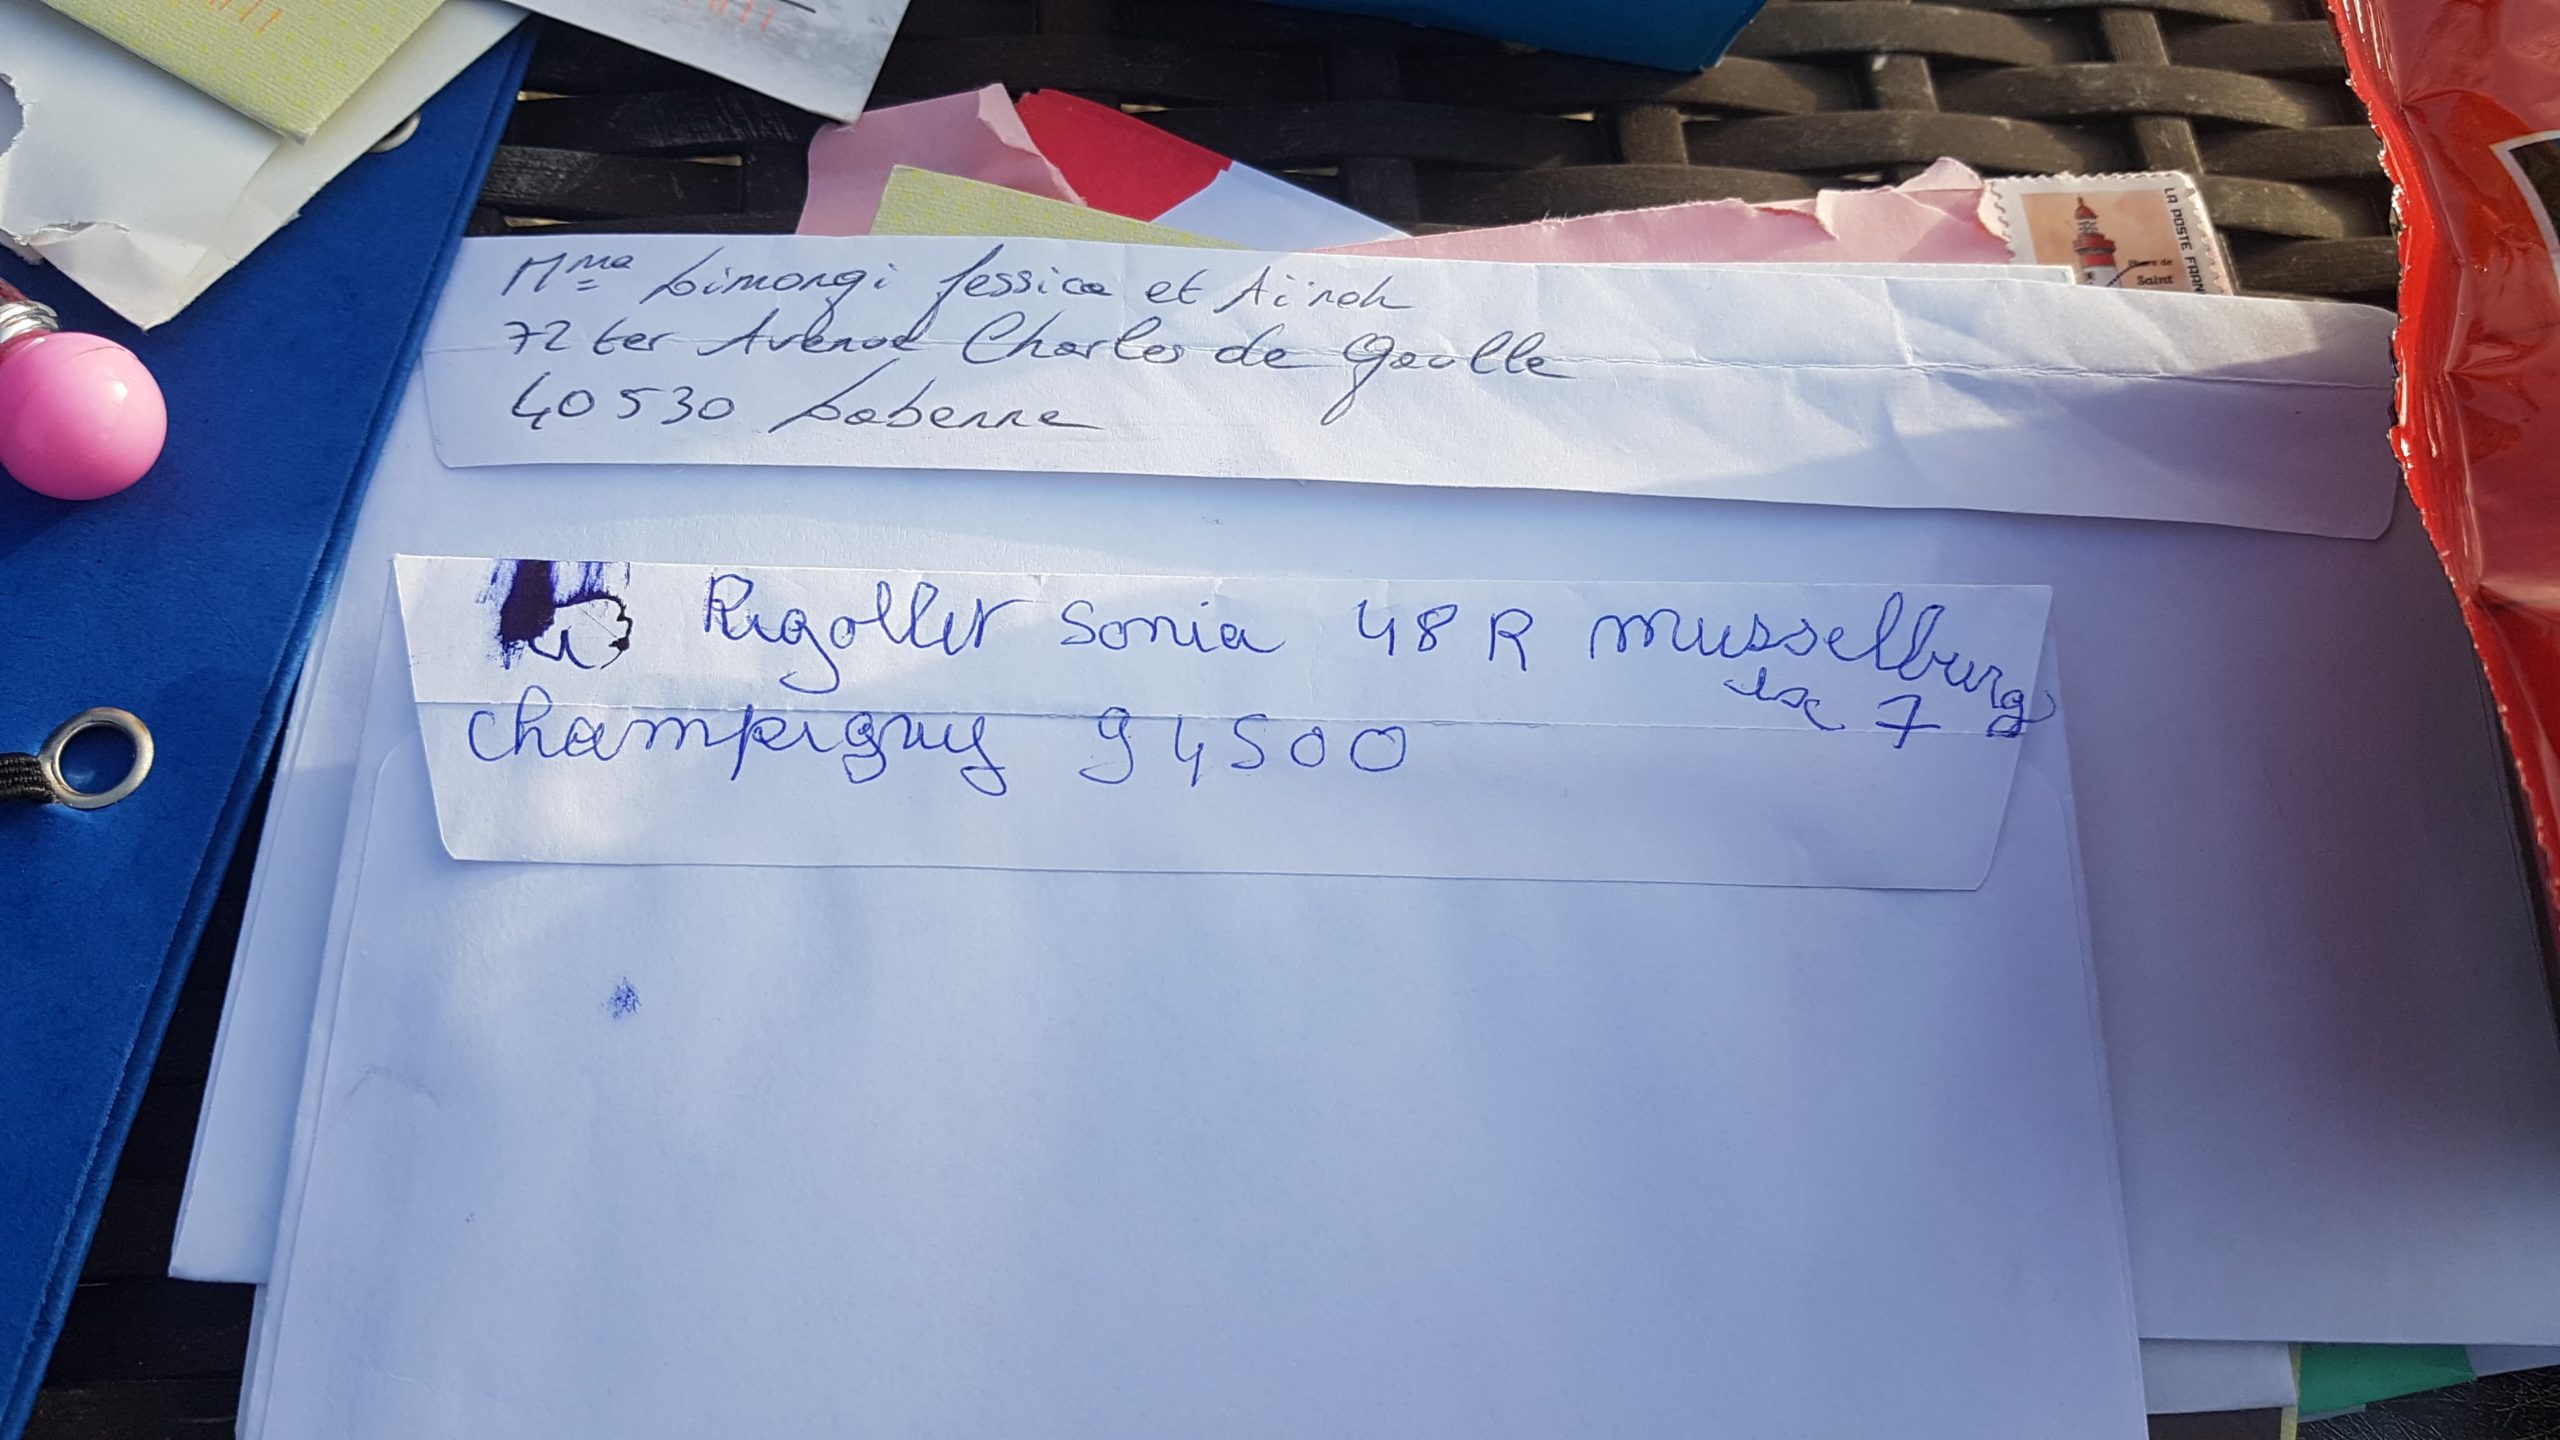 LA POSTE FRAN
Phare de
Saint
Mme Limongi Jessica et Aïnoh
72 ter Avenue Charles de Gaulle
40530 Labenne
Rigollet Sonia 48 R musselburg
esc 7
champigny 94500